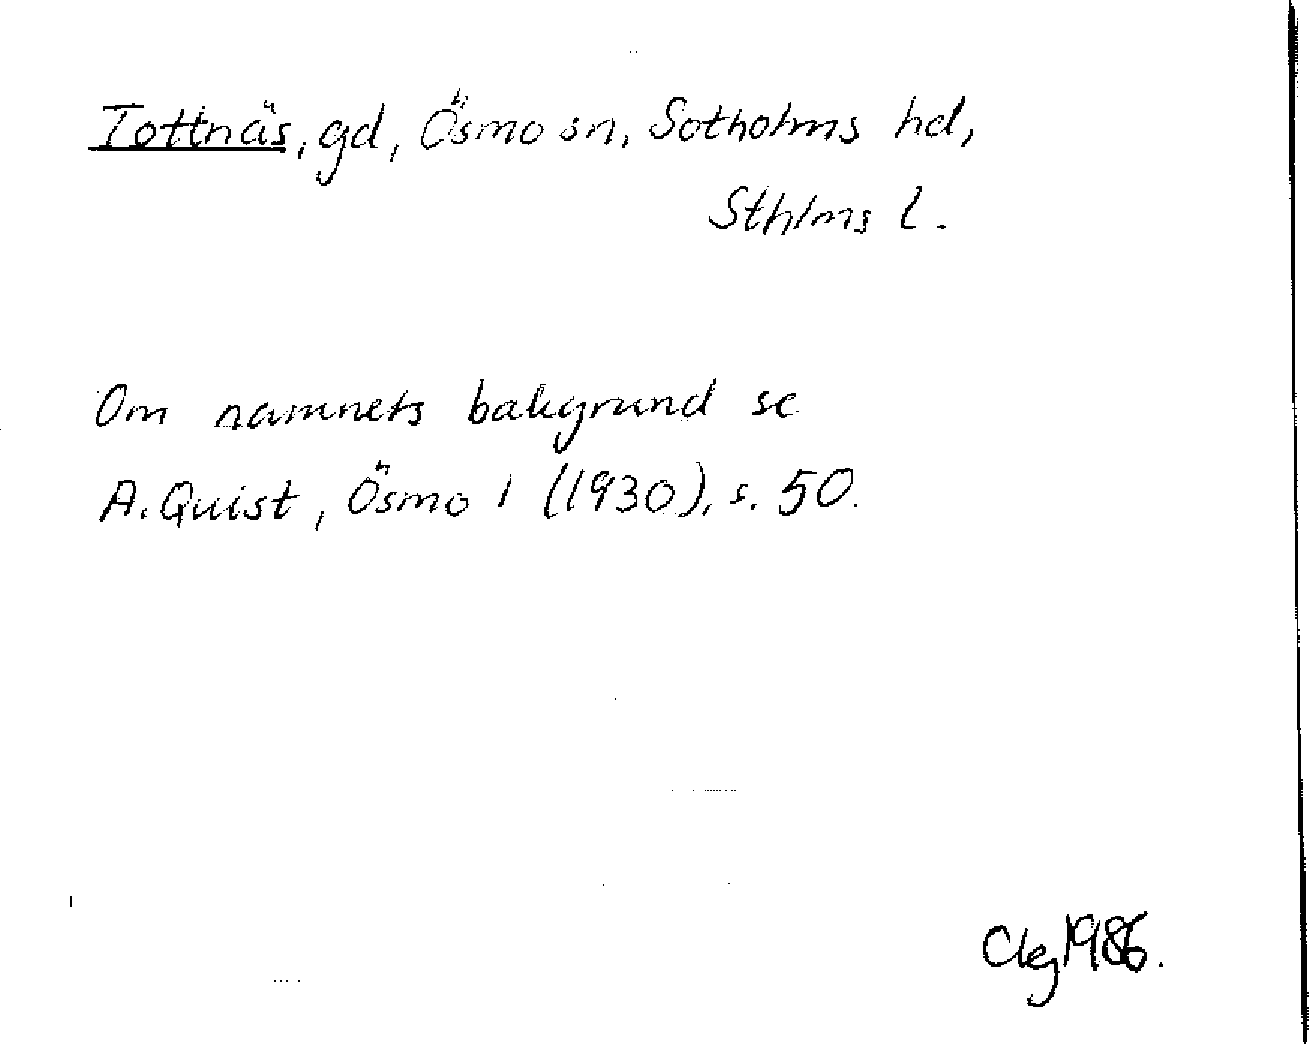 Tottnäs, gd, Ösmo sn, Sotholms hd,
Sthlms l.
Om namnets bakgrund se
A. Quist, Ösmo 1 (1930), s. 50.
1986.